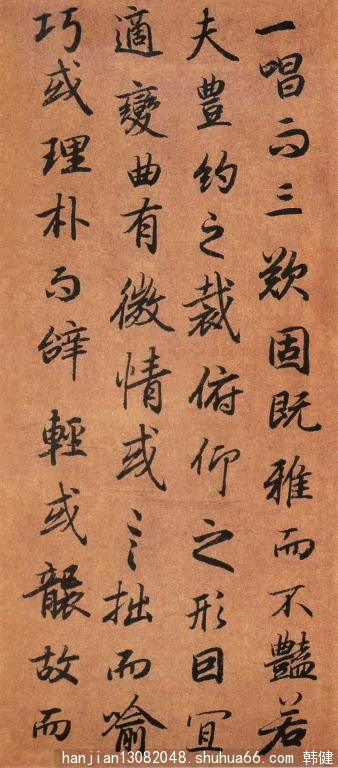 一唱而三歎固既雅而不豔若
夫豊約之裁俯仰之形囙冝
適變曲有微情或言拙而喻
巧或理朴而辭輕或襲故而
hanjian13082048.shuhua66.com 韩健